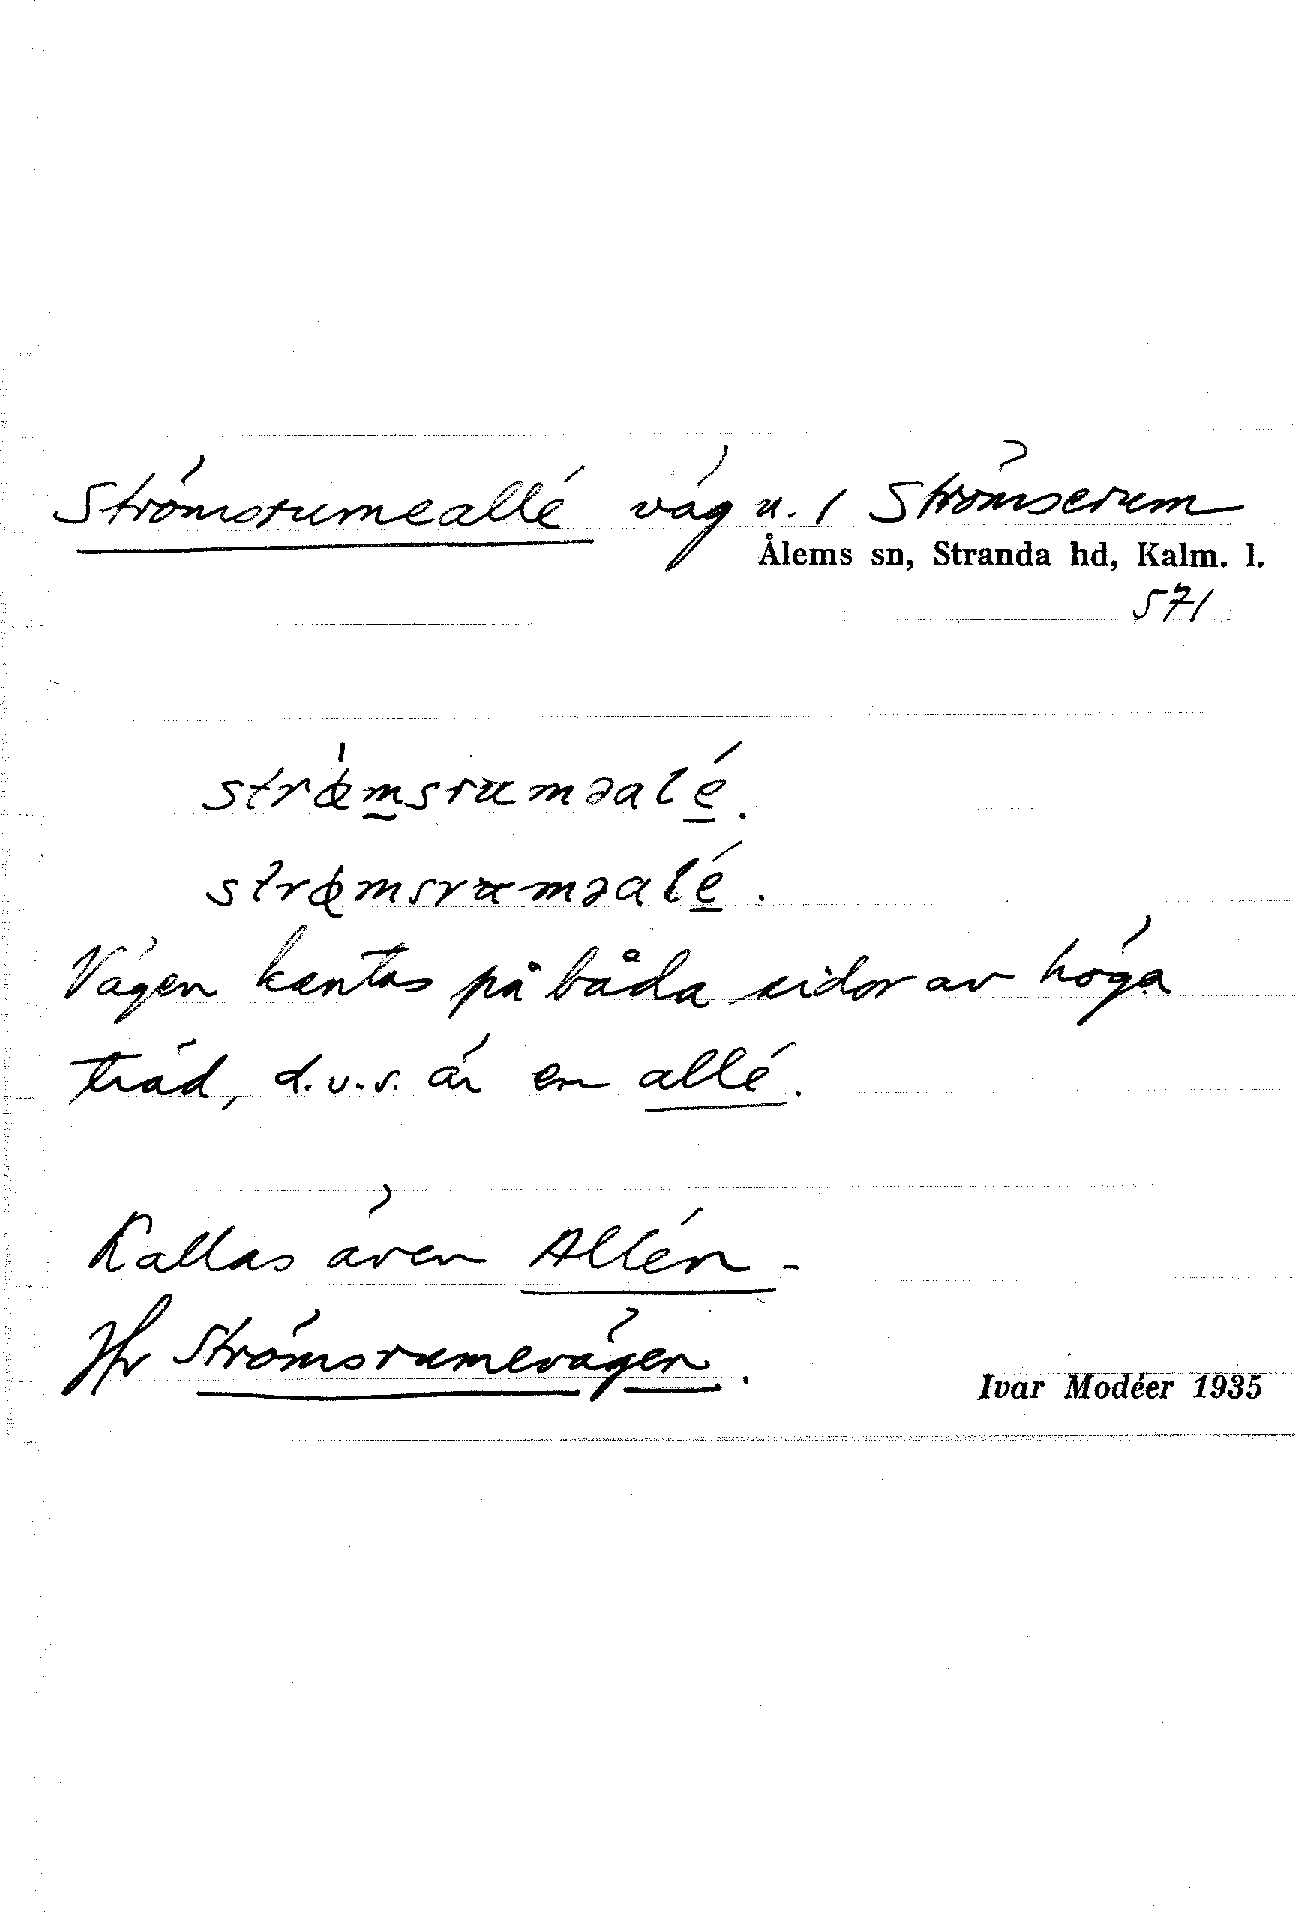 Strömsrumeallé väg u. 1 Strömserum
Ålems sn, Stranda hd, Kalm. l.
571
strǿmsruməalé.
strømsruməalé.
Vägen kantas på båda sidor av höga
träd, d.v.s. är en allé.
Kallas även Allén.
Jfr Strömsrumevägen.
Ivar Modéer 1935